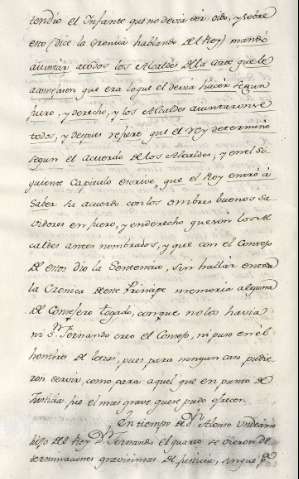 tendio el Infante que no devia ser oido, y sobre
esto (dice la Cronica hablando del Rey) mandó
aiuntár atodos los Alcaldes dela corte que le
aconsejasen que era loque el devia hacér segun
fuero, y derecho, y los Alcaldes aiuntaronse
todos, y despues refiere que el Rey determinó
segun el acuerdo de los Alcaldes, y en el si
guiente Capitulo escrive, que el Rey envió á
saber su acuerdo con los ombres buenos sa
vidores en fuero, y en derecho que son los Al
caldes antes nombrados, y que con el Consejo
de estos dio la Sentencia, sin hallár en toda
la Cronica deste Principe memoria alguna
de Consejero togado, con que no los havia
ni Sn. Fernando creo el Consejo, ni puso en él
hombres de letras, pues para ningun caso pudie
ron servir, como para aquel que en punto de
Justicia fue el mas grave que se pudo ofrecer.
En tiempo de Dn. Alonso Undecimo
hijo del Rey Dn. Fernando el quarto se dieron de
terminaciones gravisimas de justicia, en que